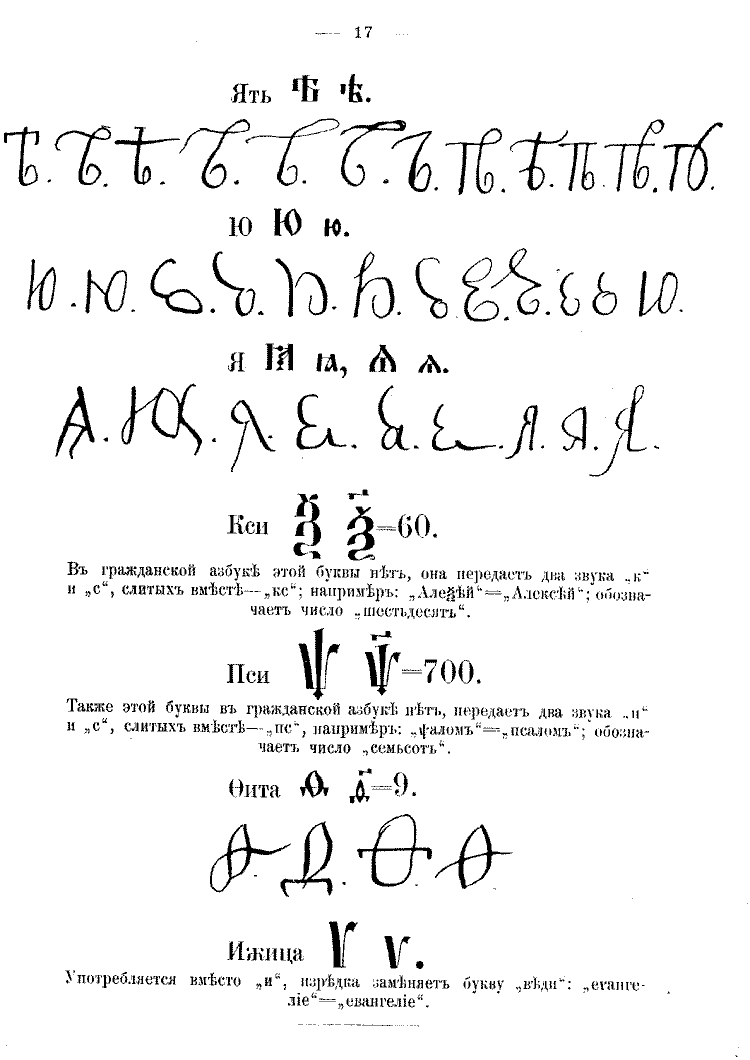 — 17 —
Ять Ѣ ѣ.
Ѣ. Ѣ. Ѣ. Ѣ. Ѣ. Ѣ. Ѣ. Ѣ. Ѣ. Ѣ. Ѣ. Ѣ.
Ю Ю ю.
Ю. Ю. Ю. Ю. Ю. Ю. Ю. Ю. Ю. Ю Ю Ю.
Я Ꙗ ꙗ, Ѧ ѧ.
Я. Я. Я. Я. Я. Я. Я. Я. Я.
Кси Ѯ ѯ=60.
Въ гражданской азбукѣ этой буквы нѣтъ, она передаетъ два звука „к“
и „с“, слитыхъ вмѣстѣ—„кс“; напримѣръ: „Алеѯѣй“=„Алексѣй“; обозна-
чаетъ число „шестьдесятъ“.
Пси Ѱ ѱ=700.
Также этой буквы въ гражданской азбукѣ нѣтъ, передаетъ два звука „п“
и „с“, слитыхъ вмѣстѣ—„пс“, напримѣръ: „ѱаломъ“=„псаломъ“; обозна-
чаетъ число „семьсотъ“.
Ѳита Ѳ ѳ=9.
Ѳ. Ѳ. Ѳ. Ѳ
Ижица Ѵ ѵ.
Употребляется вмѣсто „и“, изрѣдка замѣняетъ букву „вѣди“: „еѵанге-
ліе“=„евангеліе“.